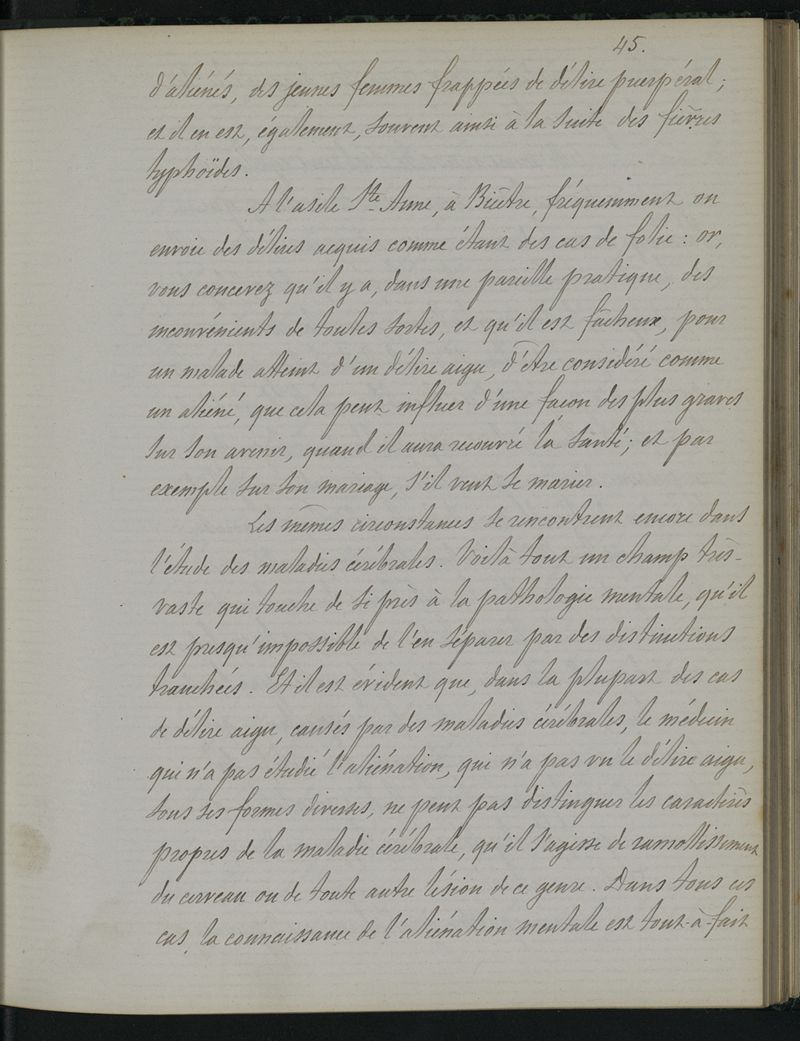 45.
d'aliénés, des jeunes femmes frappées de délire puerpéral;
et il en est, également, souvent ainsi à la suite des fièvres
typhoïdes.
A l'asile Ste Anne, à Bicêtre, fréquemment on
envoie des délires acquis comme étant des cas de folie : or,
vous concevez qu'il y a, dans une pareille pratique, des
inconvénients de toutes sortes, et qu'il est fâcheux, pour
un malade atteint d'un délire aigu, d'être considéré comme
un aliéné, que cela peut influer d'une façon des plus graves
sur son avenir, quand il aura recouvré la santé; et par
exemple sur son mariage, s'il veut se marier.
Les mêmes circonstances se rencontrent encore dans
l'étude des maladies cérébrales. Voilà tout un champ très-
vaste qui touche de si près à la pathologie mentale, qu'il
est presqu'impossible de l'en séparer par des distinctions
tranchées. Et il est évident que, dans la plupart des cas
de délire aigu, causés par des maladies cérébrales, le médecin
qui n'a pas étudié l'aliénation, qui n'a pas vu le délire aigu,
sous ses formes diverses, ne peut pas distinguer les caractères
propres de la maladie cérébrale, qu'il s'agisse de ramollissement
du cerveau ou de toute autre lésion de ce genre. Dans tous ces
cas, la connaissance de l'aliénation mentale est tout-à-fait